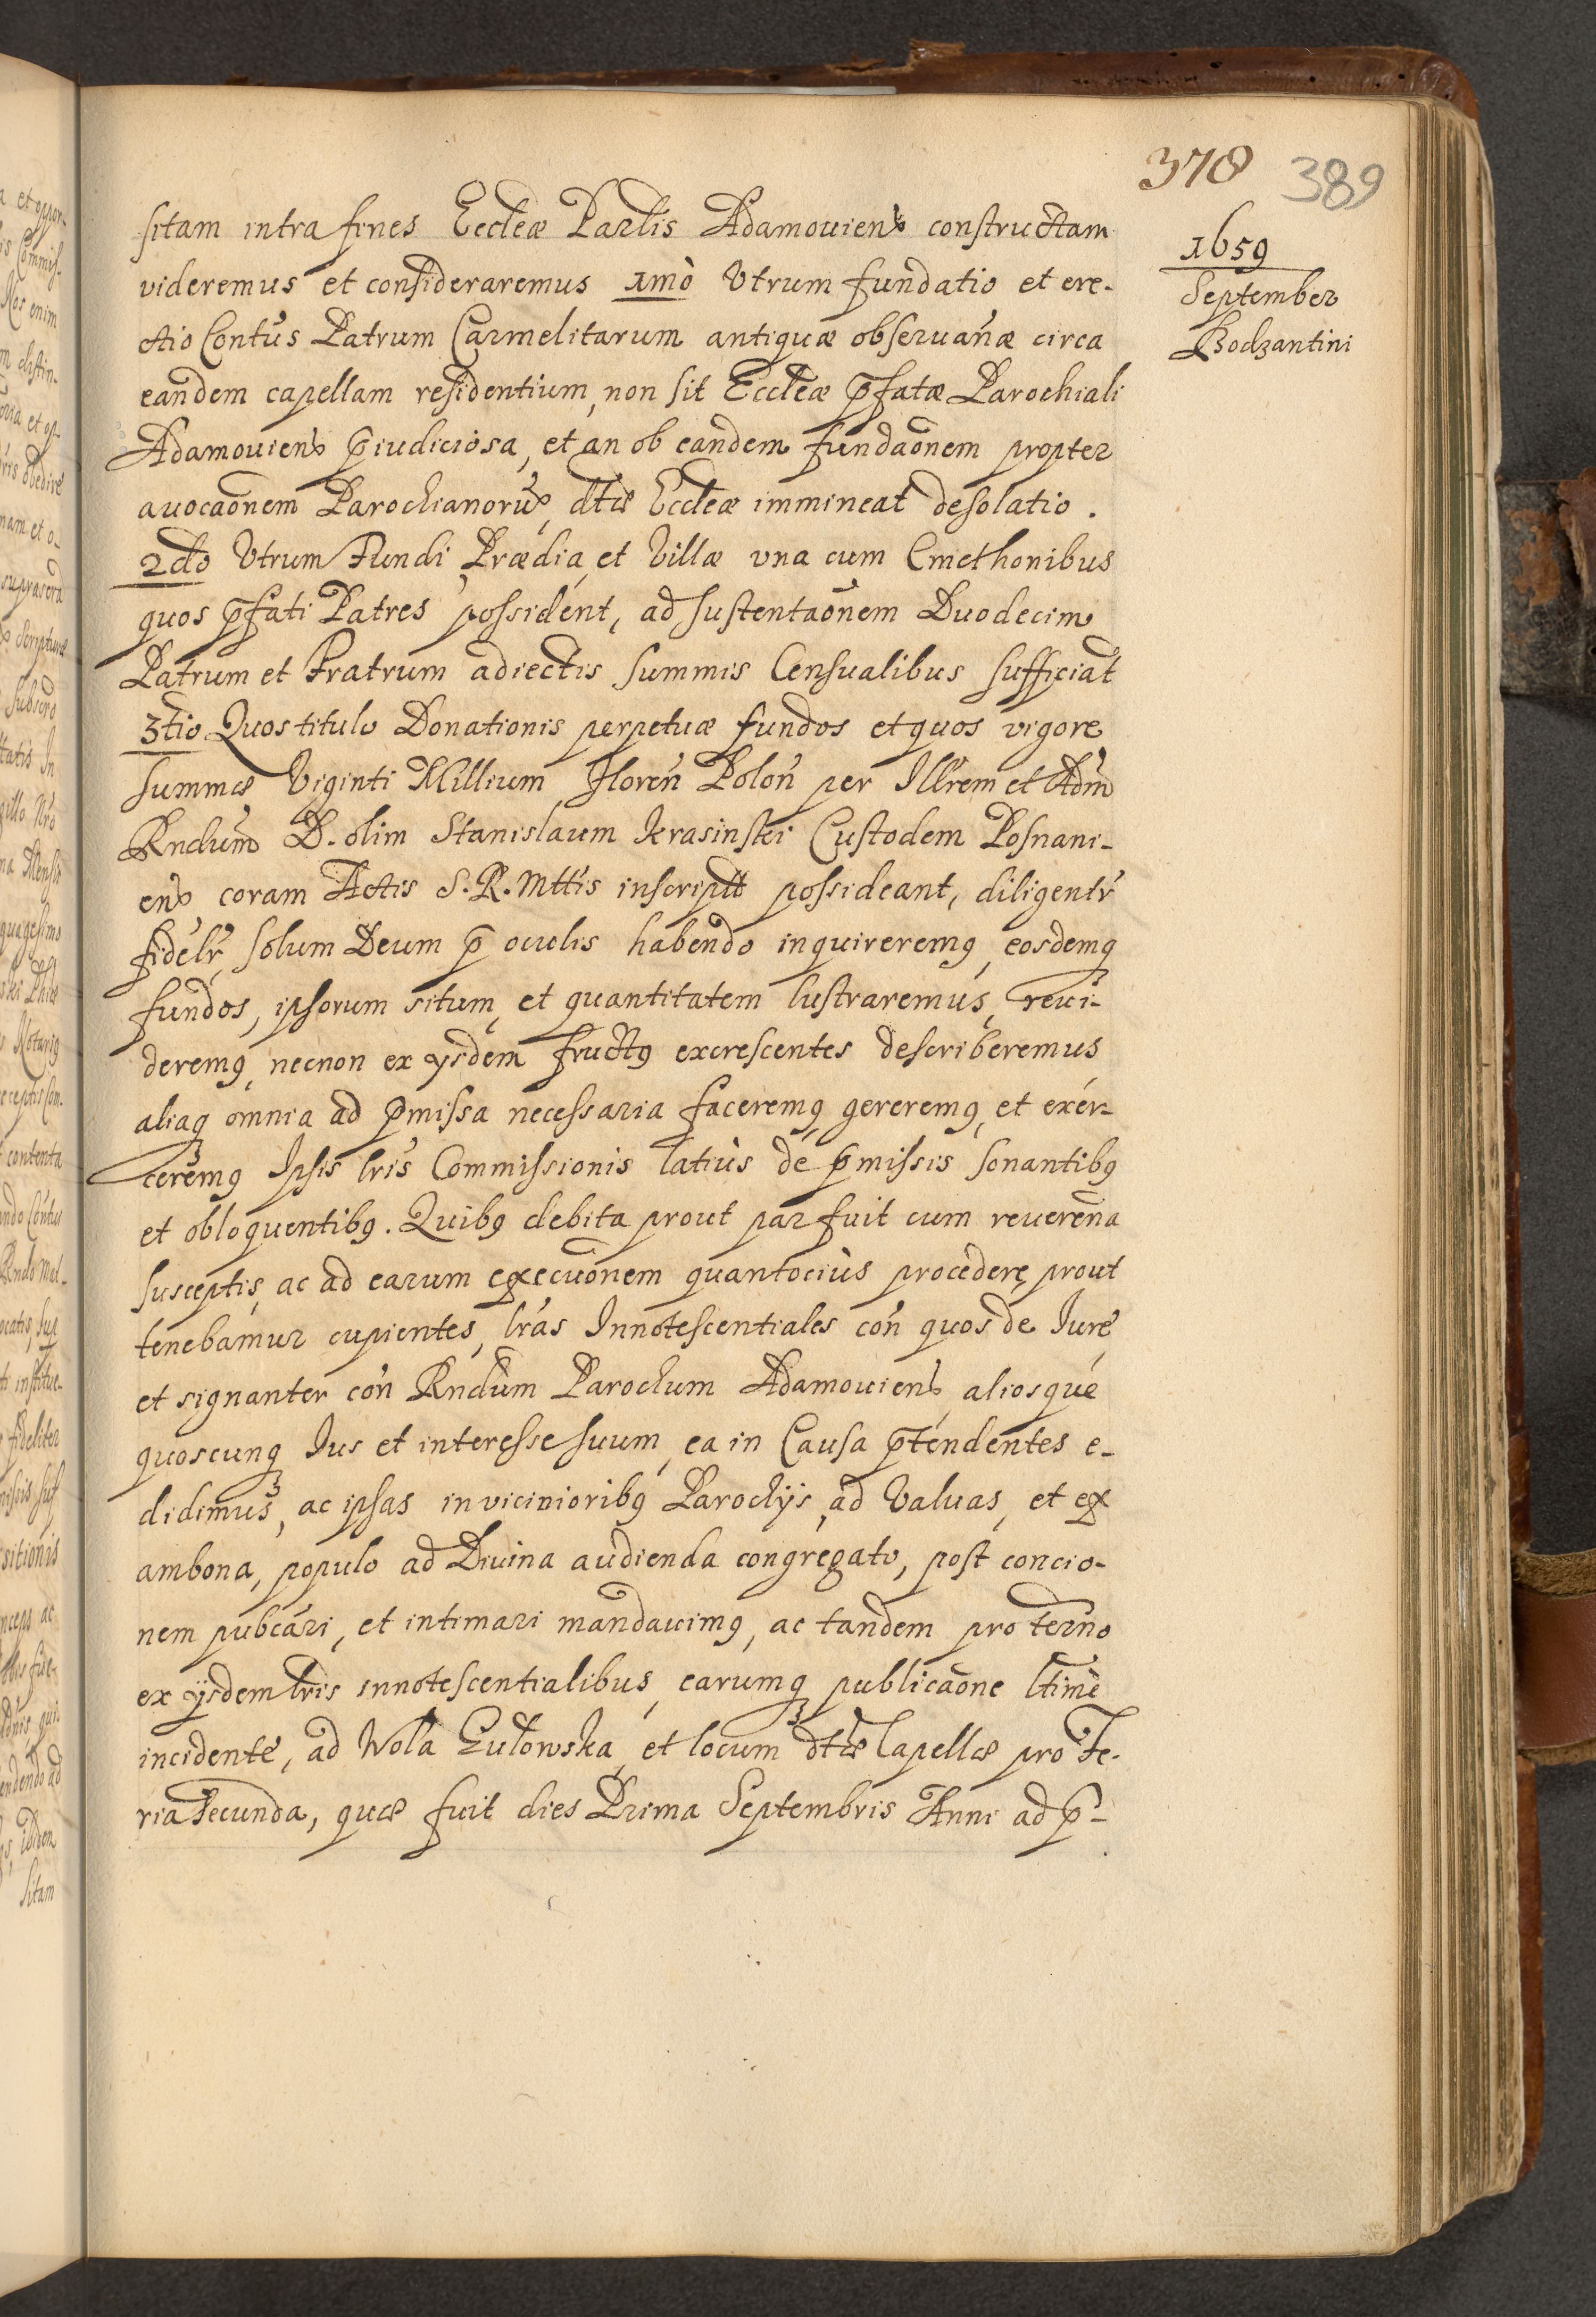 378 389
1659
September
Bodzantini
sitam intra fines Eccleæ Parlis Adamouiens constructam
videremus et consideraremus 1mò Vtrum fundatio et ere-
ctio Contus Patrum Carmelitarum antiquæ obseruanæ circa
eandem capellam residentium, non sit Eccleæ p̄fatæ Parochiali
Adamouiens p̄iudiciosa, et an ob eandem fundaōnem propter
auocaōnem Parochianorum, dtæ Eccleæ immineat desolatio.
2do Vtrum Fundi, Prædia, et Villæ vna cum Cmethonibus
quos p̄fati Patres possident, ad sustentaōnem Duodecim
Patrum et Fratrum adiectis summis Censualibus sufficiat
3tio Quos titulo Donationis perpetuæ fundos et quos vigore
summæ Viginti Millium Floren Polon per Illrem et Adm
Rndum D. olim Stanislaum Krasinski Custodem Posnani-
ens coram Actis S. R. Mttis inscriptt possideant, diligentr
fidelr, solum Deum p̄ oculis habendo inquireremq, eosdemq
fundos, ipsorum situm, et quantitatem lustraremus, reui-
deremq, necnon ex ysdem fructq excrescentes describeremus
aliaq omnia ad p̄missa necessaria faceremq gereremq, et exer-
ceremq Ipsis lris Commissionis latiùs de p̄missis sonantibq
et obloquentibq. Quibq debita prout par fuit cum reuerena
susceptis, ac ad earum execuōnem quantociùs procedere, prout
tenebamur cupientes, lras Innotescentiales con quos de Iure,
et signanter con Rndum Parochum Adamouiens, aliosque
quoscunq Ius et interesse suum, ea in Causa p̄tendentes e-
didimus, ac ipsas in vicinioribq Parochijs, ad Valuas, et ex
ambona, populo ad Diuina audienda congregato, post concio-
nem pubcari, et intimari mandauimq, ac tandem pro termo
ex ijsdem lris innotescentialibus, earumq publicaōne ltimè
incidente, ad Wola Gułowska, et locum dtæ Capellæ pro Fe-
ria secunda, quæ fuit dies Prima Septembris Anni ad p̄-